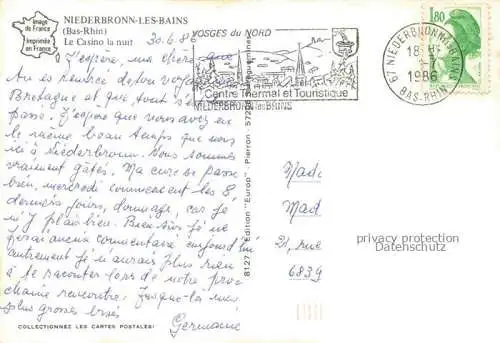 Image de France
Imprimée en France
NIEDERBRONN-LES-BAINS
(Bas-Rhin)
Le Casino la nuit
30.6.86
J'espère, ma chère que
tu es rentrée de ton voyage
Bretagne et que tout s'est
passé. J'espère que vous avez eu
le même beau temps que nous
ici à Niederbronn. Nous sommes
vraiment gâtés. Ma cure se passe
bien, mercredi commencent les 8
derniers jours, dommage, car je
m'y plais bien. Bien sûr je ne
ferai aucun commentaire aujourd'hui
autrement je n'aurais plus rien
à te raconter lors de notre pro-
chaine rencontre. Jusque-là mes
plus grosses bises
Germaine
COLLECTIONNEZ LES CARTES POSTALES!
8127 - Edition "Europ" - Pierron - 572 Sarreguemines
VOSGES DU NORD
Centre Thermal et Touristique
NIEDERBRONN-les-BAINS
67 NIEDERBRONN-LES-BAINS
18 H
1-7
1986
BAS-RHIN
1,80
Mad.
Mad
21, rue
6839
privacy protection
Datenschutz